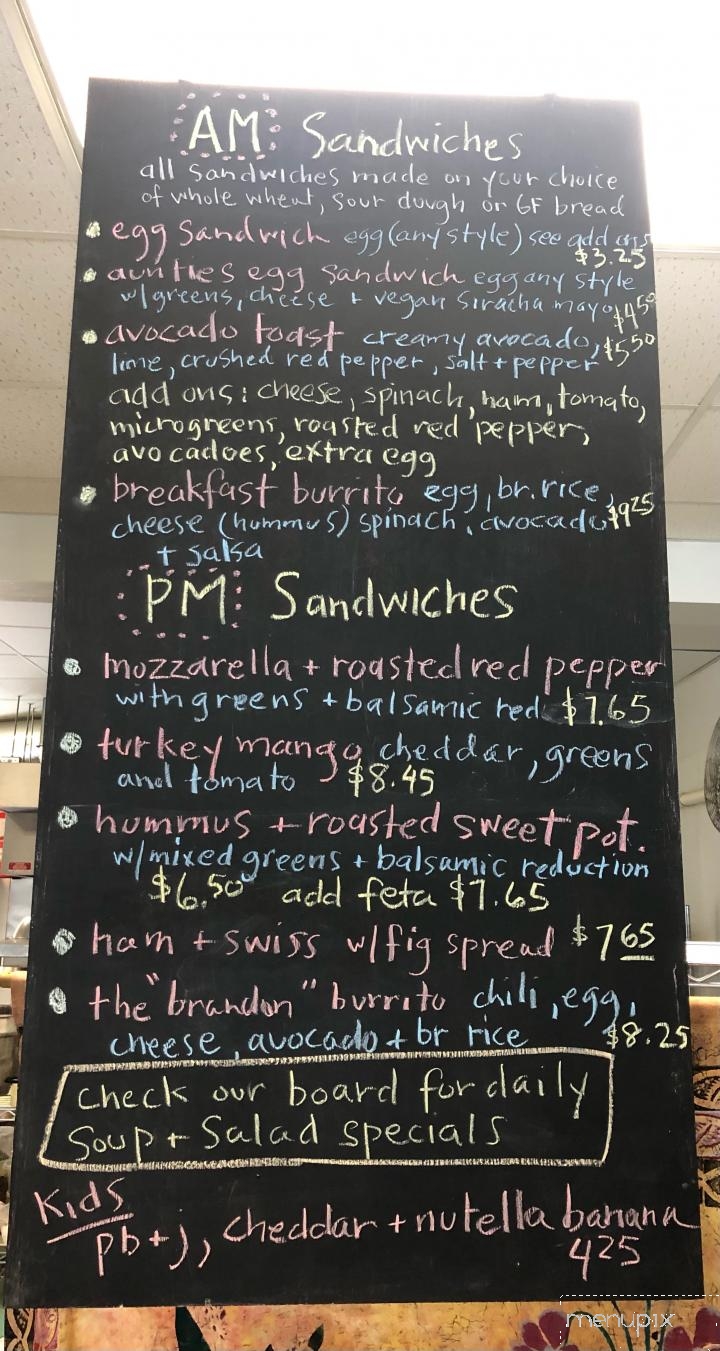 AM Sandwiches
all sandwiches made on your choice
of whole wheat, sour dough or GF bread
egg sandwich egg (any style) see add ons
$3.25
aunties egg sandwich egg any style
w/greens, cheese + vegan siracha mayo $4.50
avocado toast creamy avocado, $5.50
lime, crushed red pepper, salt + pepper
add ons: cheese, spinach, ham, tomato,
microgreens, roasted red pepper,
avocadoes, extra egg
breakfast burrito egg, br. rice,
cheese (hummus) spinach, avocado $9.25
+ salsa
PM Sandwiches
mozzarella + roasted red pepper
with greens + balsamic red $7.65
turkey mango cheddar, greens
and tomato $8.45
hummus + roasted sweet pot.
w/mixed greens + balsamic reduction
$6.50 add feta $7.65
ham + swiss w/fig spread $7 65
the "brandon" burrito chili, egg,
cheese, avocado + br rice $8.25
check our board for daily
Soup + Salad specials
Kids
pb+j, cheddar + nutella banana
425
menupix